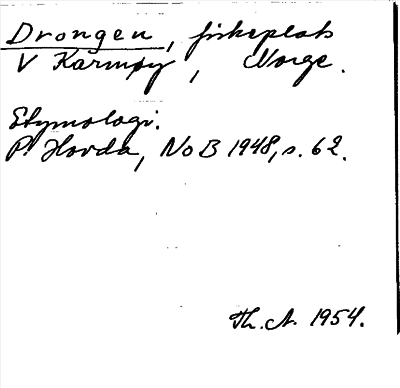 Drongen, fiskeplats
V Karmøy, Norge.
Etymologi.
P. Hovda, NoB 1948, s. 62.
Th. A. 1954.